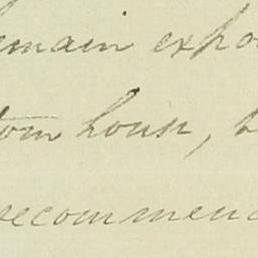 remain expo
tom house, t
recommend